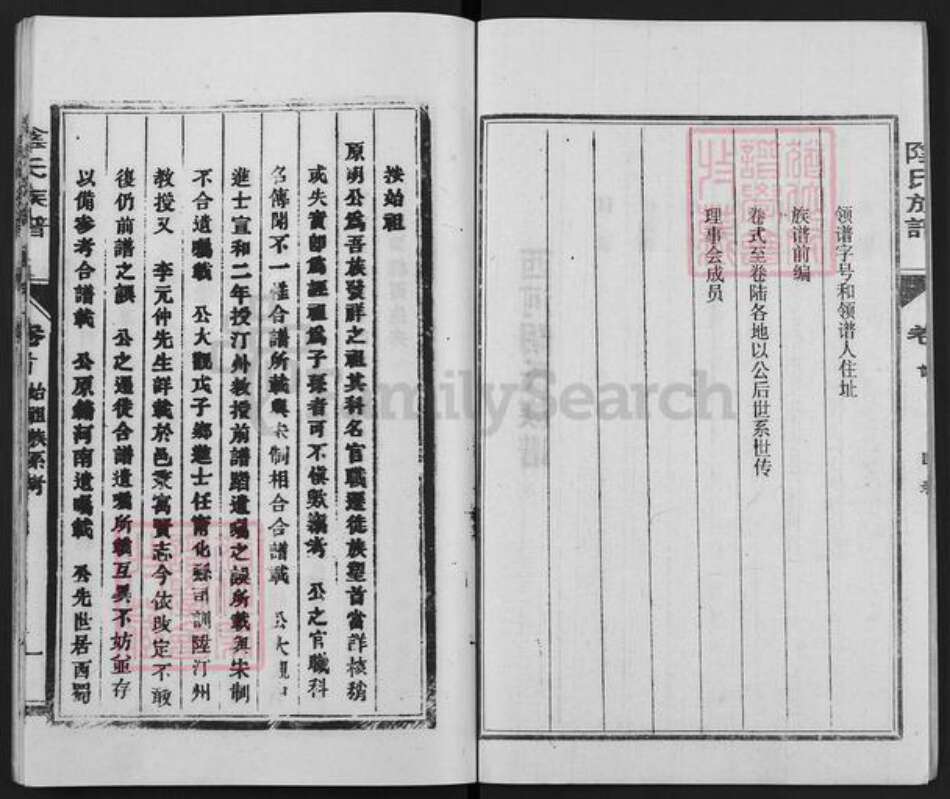 领谱字号和领谱人住址
族谱前编
卷式至卷陆各地以公后世系世传
理事会成员
陰氏族譜
卷首
按始祖
原明公爲吾族發祥之祖其科名官職遷徙族塋首當詳核稍
或失實卽爲誣祖爲子孫者可不愼歟 公之官職科
名傳聞不一惟合譜所載與宋制相合合譜載 公大觀
進士宣和二年授汀州教授前譜蹈遺囑之誤所載與宋制
不合遺囑載 公大觀戊子鄉進士任甯化縣司訓陞汀州
教授又 李元仲先生詳載於邑乘寓賢志今依改定不敢
復仍前譜之誤 公之遷徙合譜遺囑所載互異不妨並存
以備參考合譜載 公原籍河南遺囑載 公先世居西蜀
陰氏族譜
卷首 始祖族系考 一
FamilySearch